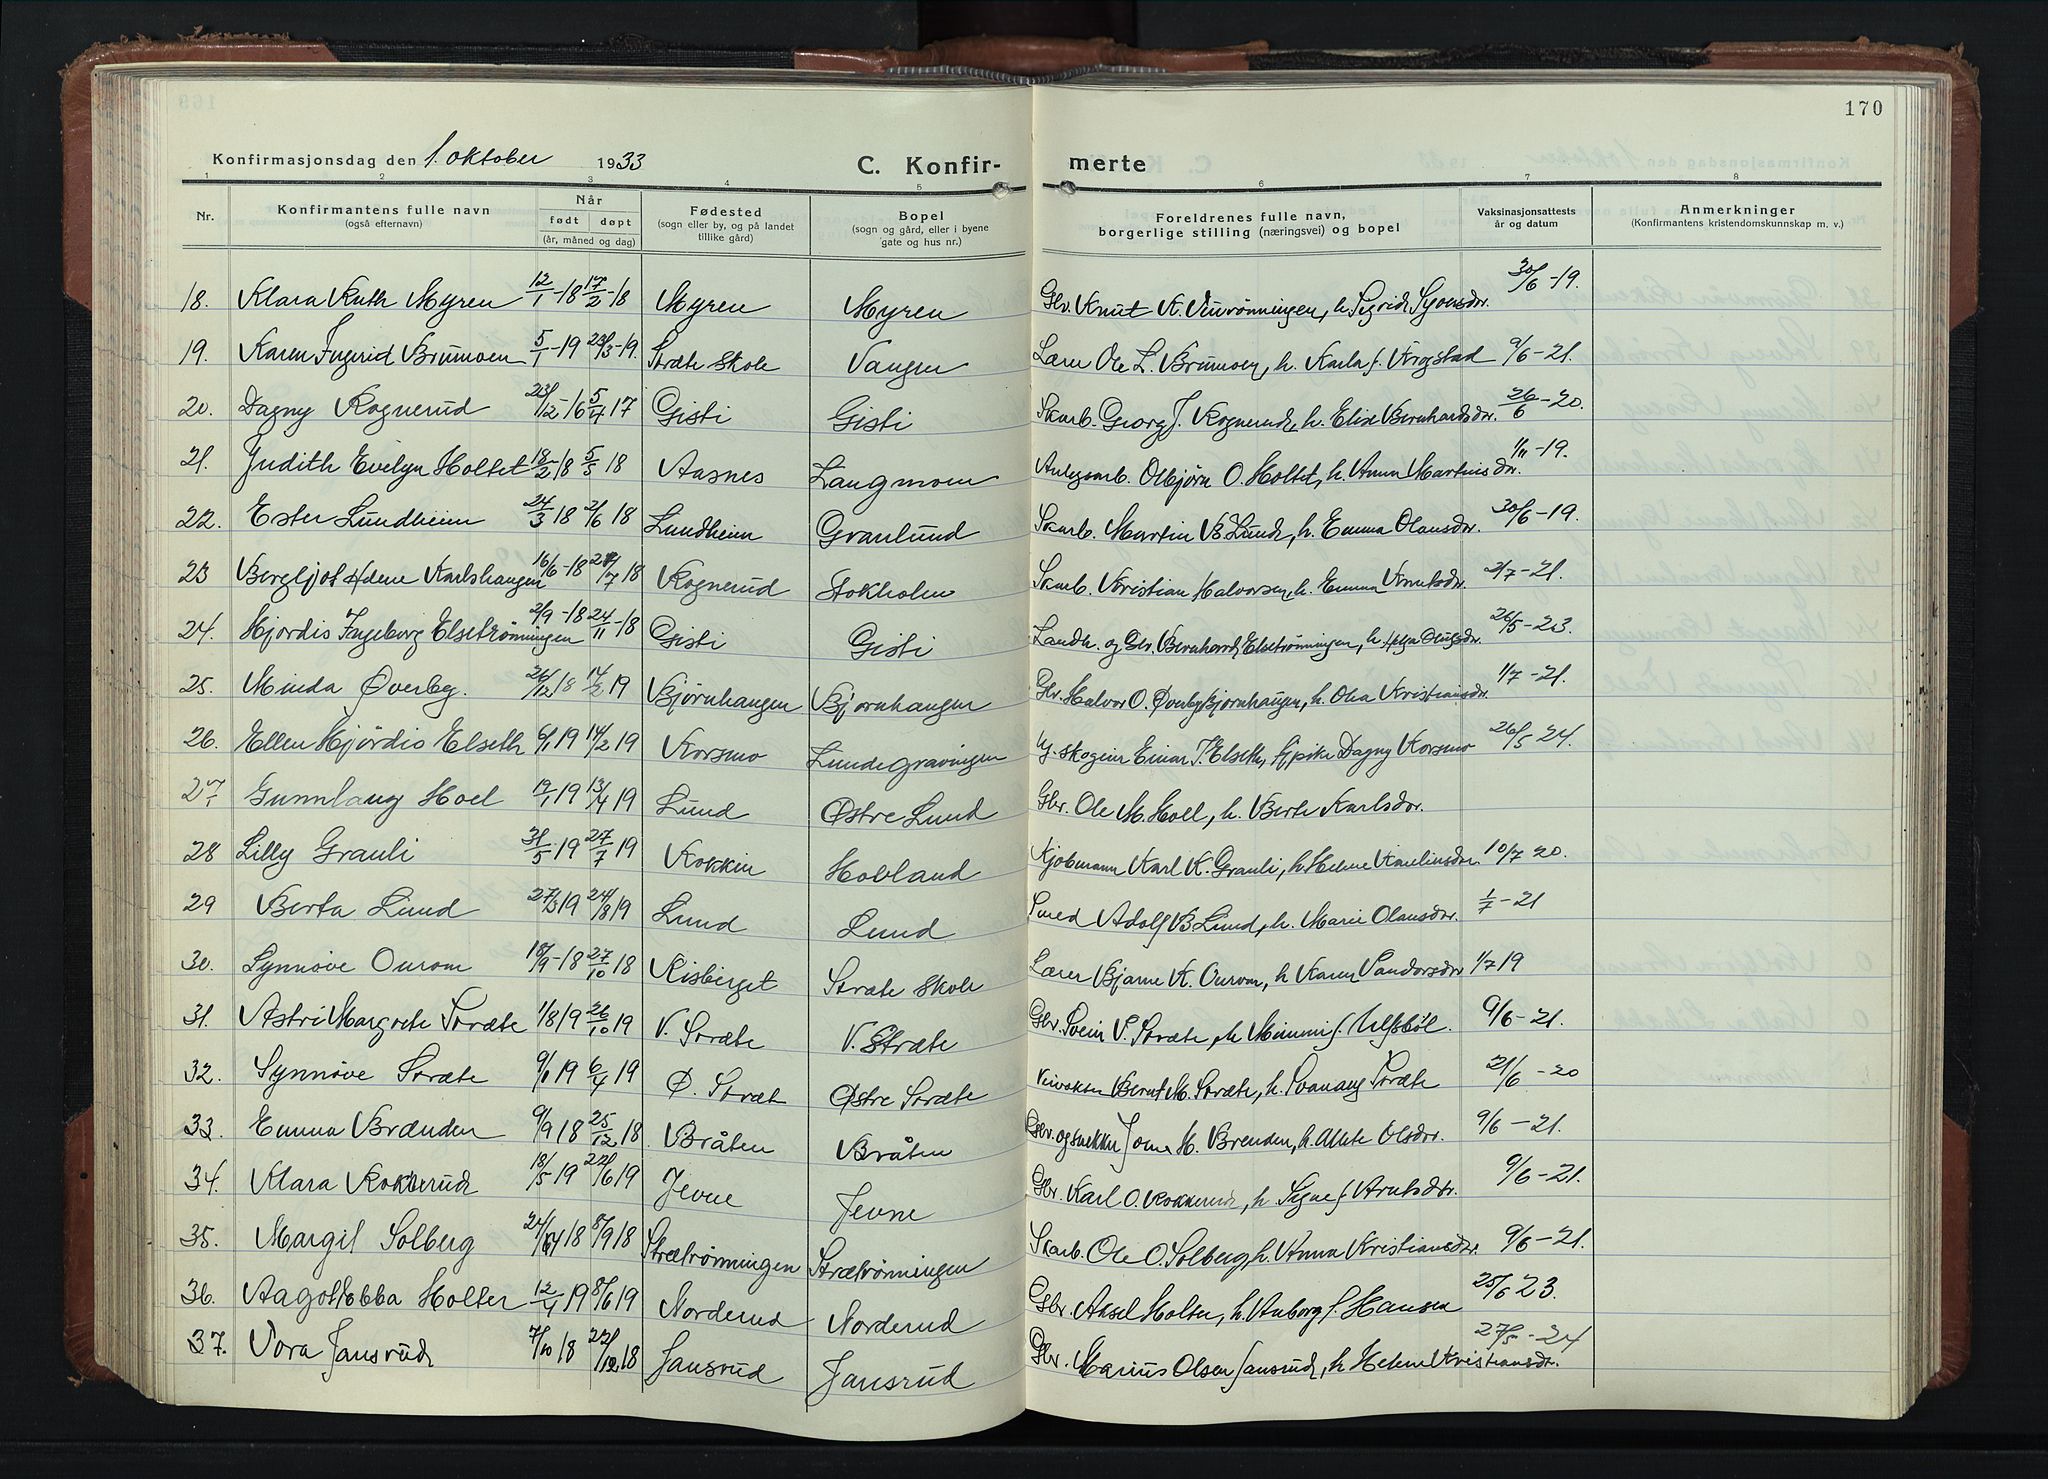 170
Konfirmasjonsdag den 1. oktober 1933
C. Konfir- merte
1 2 3 4 5 6 7 8
Nr.
Konfirmantens fulle navn (også efternavn)
Når født døpt (år, måned og dag)
Fødested (sogn eller by, og på landet tillike gård)
Bopel (sogn og gård, eller i byene gate og hus nr.)
Foreldrenes fulle navn, borgerlige stilling (næringsvei) og bopel
Vaksinasjonsattests år og datum
Anmerkninger (Konfirmantens kristendomskunnskap m. v.)
18. Klara Ruth Myren 12/1-18 17/2-18 Myren Myren Gbr. Knut K. h. Sigrid 30/6-19.
19. Karen Ingerid Brumoen 5/1-19 23/3-19. Stræte skole Vangen Lærer Ole L. Brumoen, h. Karla f. Krogstad 9/6-21.
20. Dagny Rognerud 23/12-16 5/4 17 Gisti Gisti Skarb. Georg J. Rognerud, h. Elise Bernhardsdr. 26/6-20.
21. Judith Evelyn Holtet 18/2 18 5/5 18 Aasnes Langmoen Anlegsarb. Olbjørn O. Holtet, h. Anna Martinsdr. 1/11-19.
22. Ester Lundheim 24/3 18 2/6 18 Lundheim Granlund Skarb. Martin B. Lund, h. Emma Olausdr. 30/6-19.
23 Bergljot Helene Karlshaugen 16/6-18 21/7 18 Rognerud Stokholm Skarb. Kristian Halvorsen, h. Emma Knutsdr. 2/7-21.
24. Hjørdis Ingeborg Elsetrønningen 2/9-18 24/11-18 Gisti Gisti Landh. og Gbr. Bernhard Elsetrønningen, h. Helga Olufsdr. 26/5-23.
25. Minda Øverby. 26/12 18 14/2 19 Bjørnhaugen Bjørnhaugen Gbr. Halvor O. Øverby, Bjørnhaugen, h. Olea Kristiansdr. 1/7-21.
26. Ellen Hjørdis Elseth 6/1 19 14/2 19 Korsmo Lundegravingen Ug. skogeier Einar T. Elseth, og pike Dagny Korsmo 26/5 24.
27. Gunnlaug Hoel 17/1 19 13/4 19 Lund Østre Lund Gbr. Ole M. Hoel, h. Berte Karlsdr.
28 Lilly Granli 31/5 19 27/7 19 Kokkin Hobland Kjøbmann Karl K. Granli, h. Helene Karelinsdr. 10/7 20.
29 Berta Lund 27/3 19 24/8 19 Lund Lund Smed Adolf B. Lund, h. Marie Olausdr. 1/7-21
30. Synnøve Ourom 18/9-18 27/10 18 Risberget Stræte Skole Lærer Bjarne K. Ourom, h. Karen Sandersdr 1/7 19
31. Astri Margrete Stræte 1/8 19 26/10 19 V. Stræte V. Stræte Gbr. Svein P. Stræte, h. Mimmi f. Ulfsbøl. 9/6-21.
32. Synnøve Stræte 9/1 19 6/4 19 Ø. Stræte Østre Stræte Veivokter Bernt M. Stræte, h. Svanaug Stræte 21/6-20
33. Emma Brænden 9/9 18 25/12 18 Bråten Bråten Gbr. og snekker Jome H. Brenden, h. Alete Olsdr. 9/6-21.
34. Klara Rokkerud 18/5 19 22/6 19 Jevne Jevne Gbr. Karl O. Rokkerud, h. Signe f. Arntsdtr. 9/6-21.
35. Margit Solberg 24/6 18 8/9 18 Strætrønningen Strætrønningen Skarb. Ole O. Solberg, h. Anna Kristiansdr. 9/6-21.
36. Aagot Ebba Holter 12/4 19 8/6 19 Norderud Norderud Gbr. Aksel Holter, h. Anborg f. Hansen 25/6 23.
37. Tora Jansrud 7/10 18 22/12 18 Jansrud Jansrud Gbr. Marius Olsen Jansrud, h. Helene Kristiansdr. 27/5-24